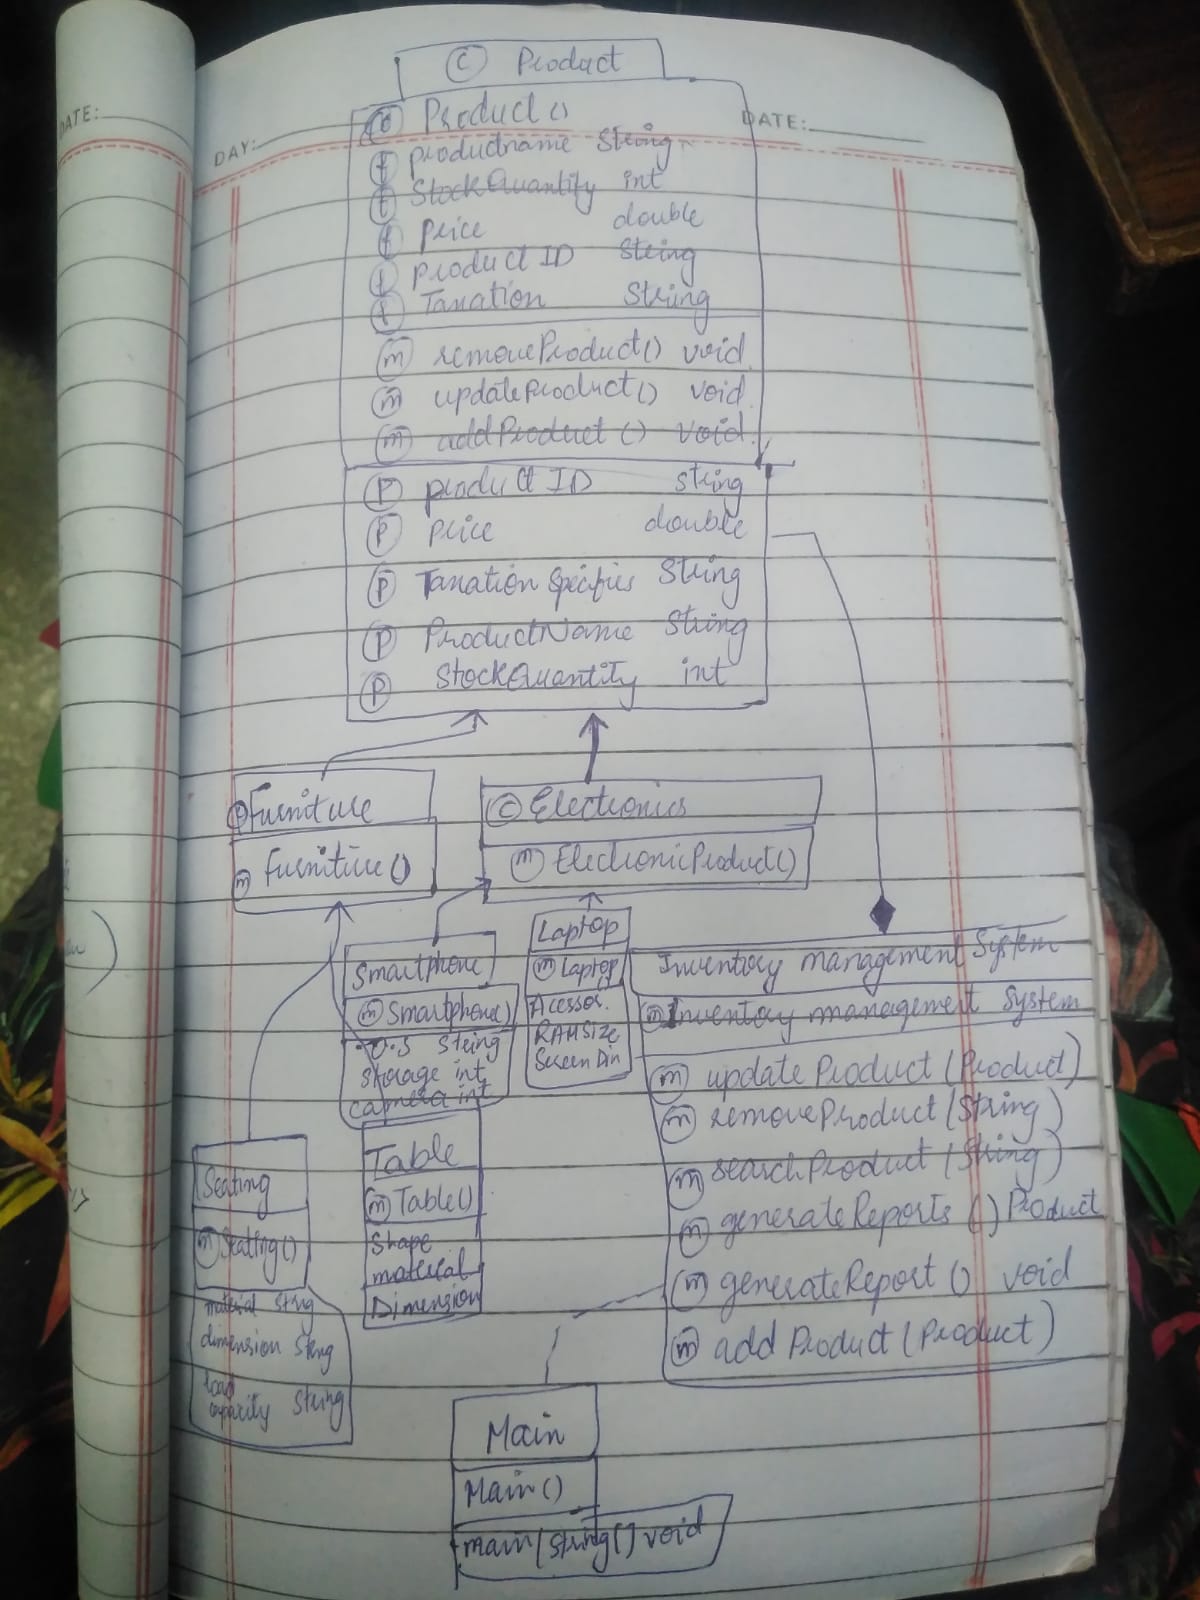 DATE:
DAY:
DATE:
C Product
Product()
f productname String
f StockQuantity int
f price double
f product ID String
f Taxation String
m removeProduct() void
m updateProduct() void
m addProduct () void
P product ID string
P price double
P Taxation Specifies String
P ProductName String
P StockQuantity int
Furniture
m furniture()
C Electronics
m ElectronicProduct()
Smartphone
m Smartphone()
O.S String
storage int
camera int
Laptop
m Laptop()
Acessor.
RAMSIZE
Screen Din
Inventory management System
m Inventory management System
m update Product (Product)
m removeProduct (String)
m searchProduct (String)
m generateReports () Product
m generateReport () void
m add Product (Product)
Seating
m Seating()
material Strng
dimension Strng
load
capacity String
Table
m Table()
Shape
material
Dimension
Main
Main()
main (String() void